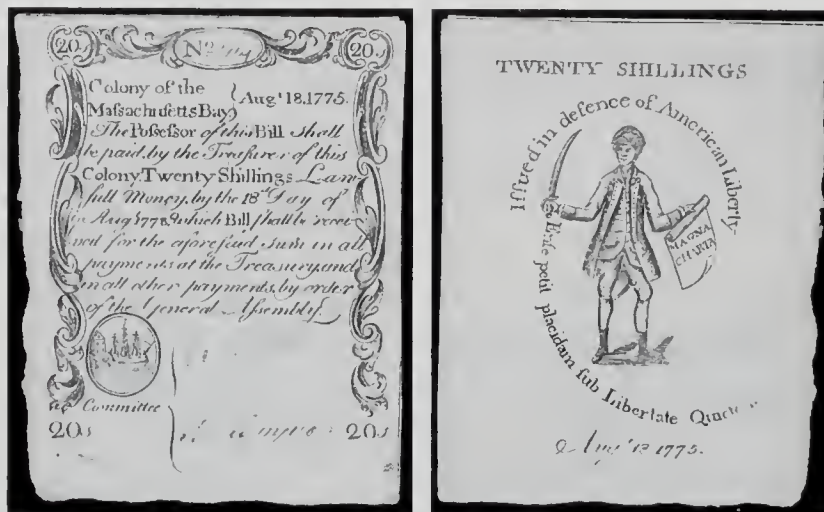 20s Nº 20s
Colony of the
Maſsachusetts Bay} Augᵗ 18.1775.
The Poſseſsor of this Bill ſhall
be paid, by the Treaſurer of this
Colony, Twenty Shillings Law-
full Money, by the 18ᵗʰ Day of
Aug. 1778, which Bill ſhall be recei-
ved for the aforeſaid sum in all
payments at the Treasury, and
in all other payments, by order
of the General Aſsembly.
Committee
20s 20s
TWENTY SHILLINGS
Iſsued in defence of American Liberty
Enſe petit placidam ſub Libertate Quietem
MAGNA
CHARTA
Augᵗ 18 1775.